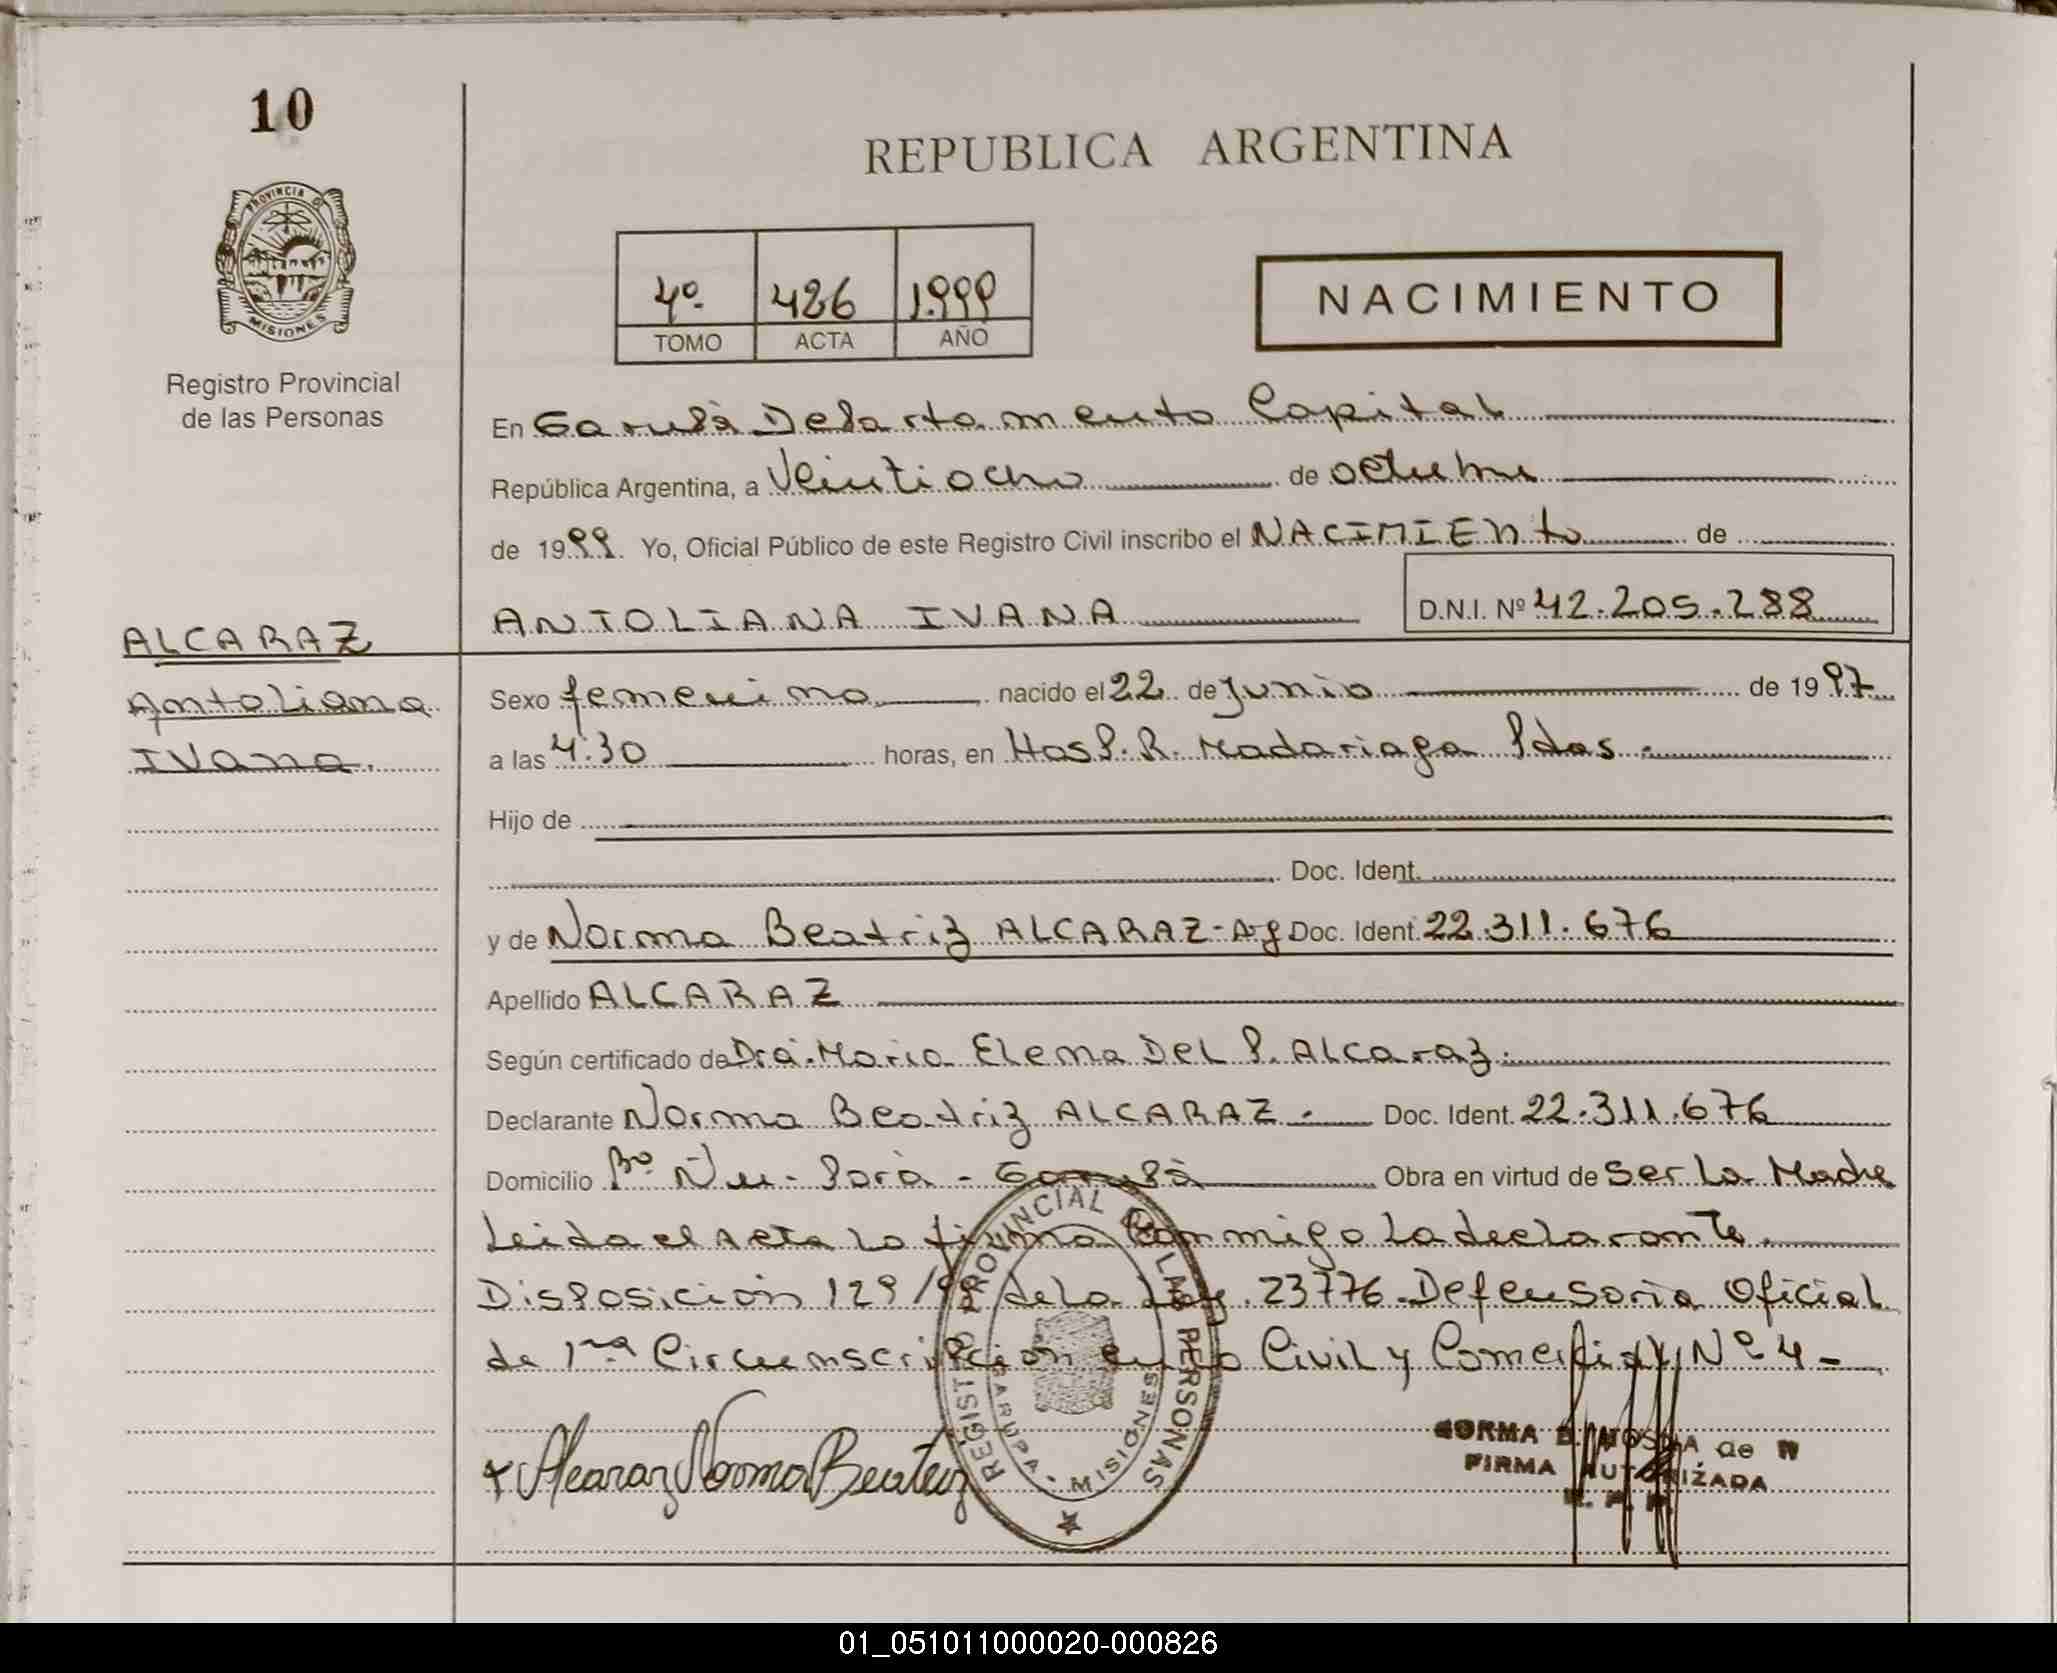 10
REPUBLICA ARGENTINA
PROVINCIA D
MISIONES
Registro Provincial
de las Personas
4º 426 1.999
TOMO ACTA AÑO
NACIMIENTO
En Garupà Departamento Capital
República Argentina, a Veintiocho de octubre
de 1999. Yo, Oficial Público de este Registro Civil inscribo el NACIMIENto de
ANTOLIANA IVANA D.N.I. Nº 42.205.288
ALCARAZ
Antoliana
IVana.
Sexo femenino nacido el 22 de Junio de 1997
a las 4:30 horas, en Hosp. R. Madariaga Pdas.
Hijo de
Doc. Ident.
y de Norma Beatriz ALCARAZ - Ag Doc. Ident. 22.311.676
Apellido ALCARAZ
Según certificado de Dra. Maria Elena Del P. Alcaraz.
Declarante Norma Beatriz ALCARAZ. Doc. Ident. 22.311.676
Domicilio Bº Ñu - Porà - Garupà Obra en virtud de Ser La Madre
Leida el acta La firma Conmigo La declarante.
Disposición 129/99 de La Ley. 23776. Defensoria Oficial
de 1ra Circunscripcion en Lo Civil y Comercial Nº 4 -
Alcaraz Norma Beatriz
REGISTRO PROVINCIAL DE LAS PERSONAS
GARUPA - MISIONES
NORMA B. de
FIRMA AUTORIZADA
R. P. P.
01_051011000020-000826